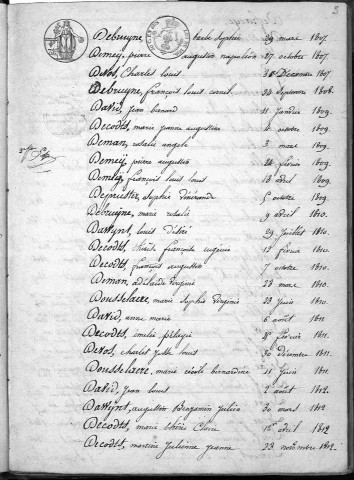 3
Debruyne, sophie 29 mars 1807.
Demey, pierre augustin napoléon 27 octobre 1807.
Devos, Charles Louis 31 Décembre 1807
Debruyne, françois louis corneil 22 Septembre 1808.
David, jean bernard 11 janvier 1809.
Decodts, marie jeanne augustine 4 octobre 1809.
Deman, rosalie angele 3 mars 1809.
Demey, pierre augustin 24 février 1809.
Demey, françois louis louis 13 avril 1809.
Depriester, sophie Vénérande 5 octobre 1809.
Debruyne, marie rosalie 9 avril 1810.
Dassynt, louis désiré 29 Juillet 1810.
Decodts, françoise eugénie 13 février 1810.
Decodts, françois augustin 7 octobre 1810.
Deman, adélaïde virginie 22 mars 1810.
Dousselaere, marie sophie virginie 23 juin 1810.
David, anne marie 6 août 1811
Decodts, amélie pélagie février 1811.
Devos, charles louis 30 décembre 1811.
Dousselaere, marie cécile bernardine 11 juin 1811.
David, jean louis 2 août 1812.
Dassynt, augustin Benjamin Julien 30 mars 1812
Decodts, marie thérèse Claire avril 1812
Decodts, Julienne jeanne 23 novembre 1812.